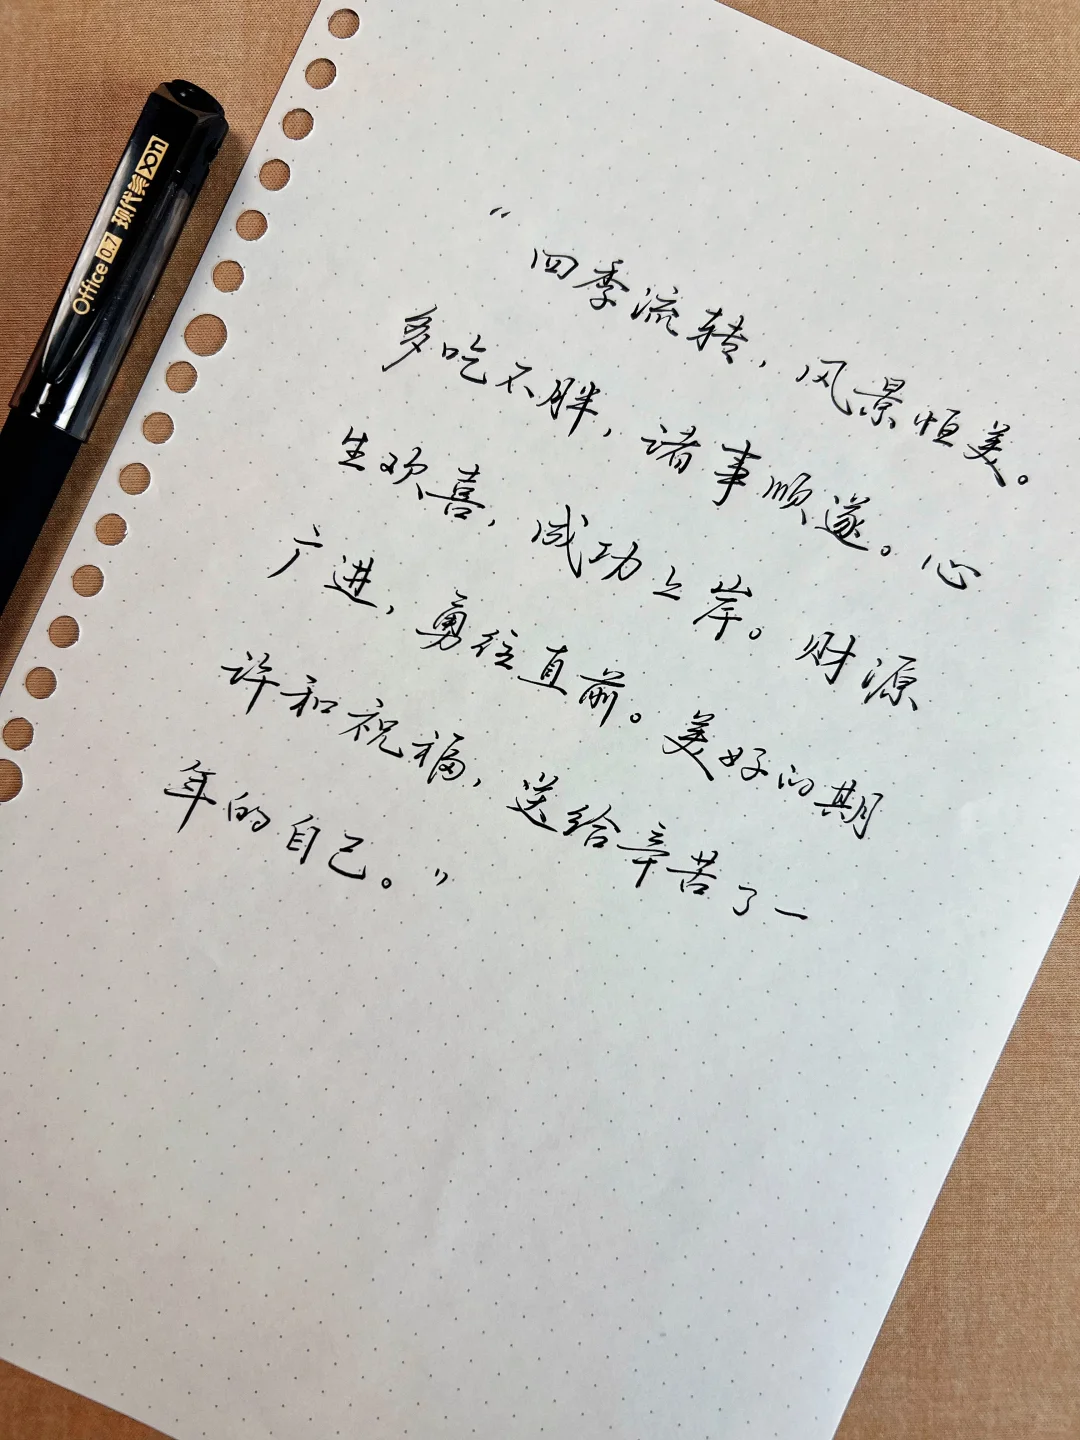 “四季流转，风景恒美。
多吃不胖，诸事顺遂。心
生欢喜，成功上岸。财源
广进，勇往直前。美好的期
许和祝福，送给辛苦了一
年的自己。”
Office 0.7 现代美